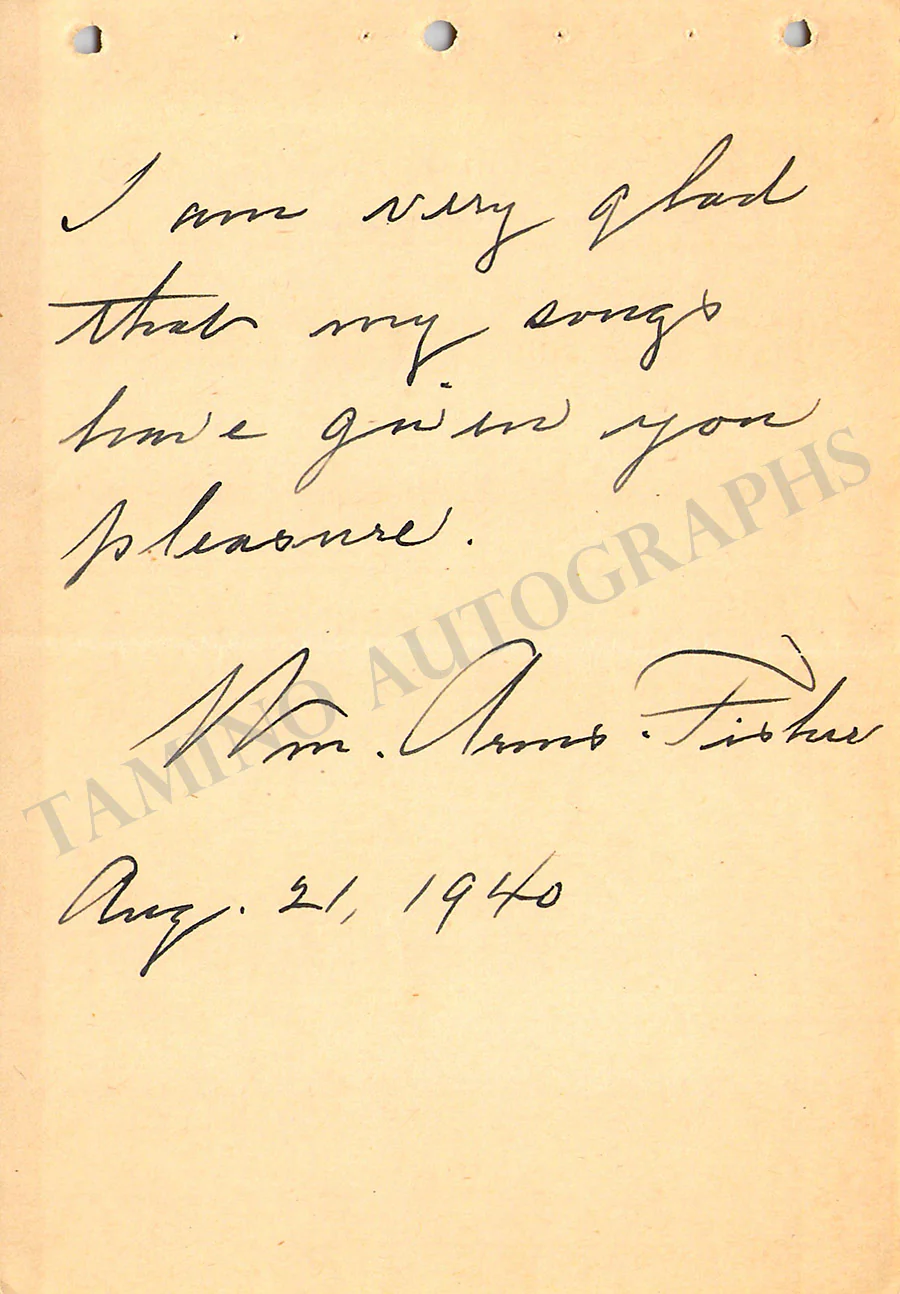 I am very glad
that my songs
have given you
pleasure.
Wm. Arms. Fisher
Aug. 21, 1940
TAMINO AUTOGRAPHS